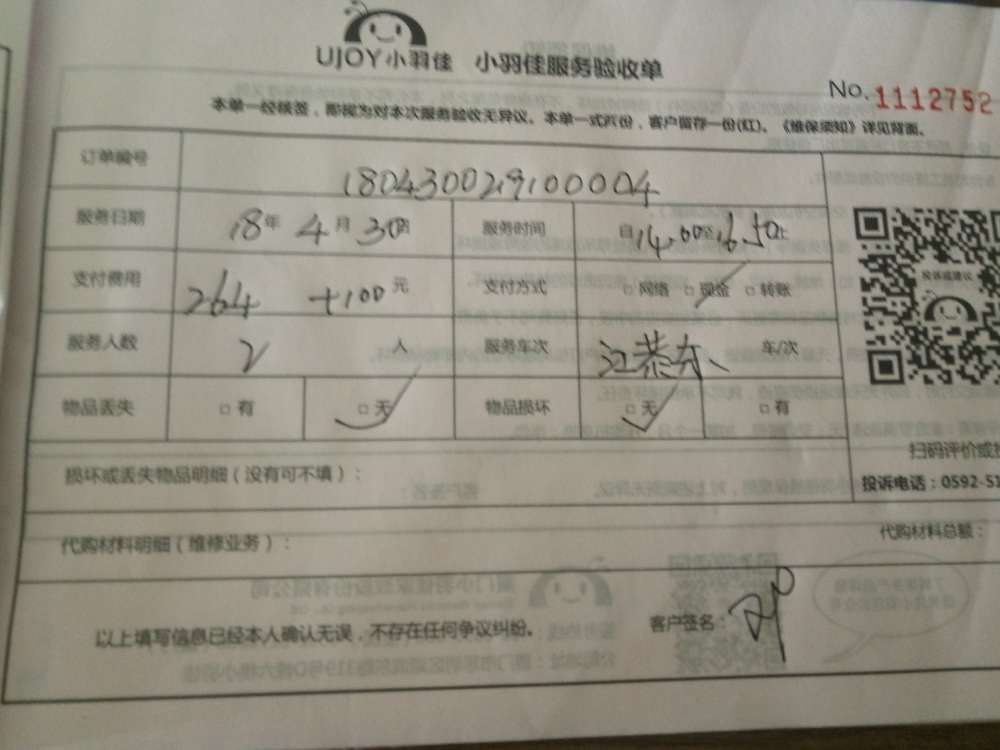 UJOY小羽佳 小羽佳服务验收单
No.1112752
本单一经核签，即视为对本次服务验收无异议。本单一式两份，客户留存一份(红)。《维保须知》详见背面。
订单编号 180430029100004
服务日期 18年 4月 30日 服务时间 自14:00至16:50止
支付费用 264 +100元 支付方式 □网络 □现金 □转账
服务人数 2 人 服务车次 江恭东 车/次
物品丢失 □有 □无 物品损坏 □无 □有
投诉或建议
扫码评价或投
损坏或丢失物品明细（没有可不填）：
投诉电话：0592-51
代购材料明细（维修业务）：
代购材料总额：
以上填写信息已经本人确认无误，不存在任何争议纠纷。
客户签名：